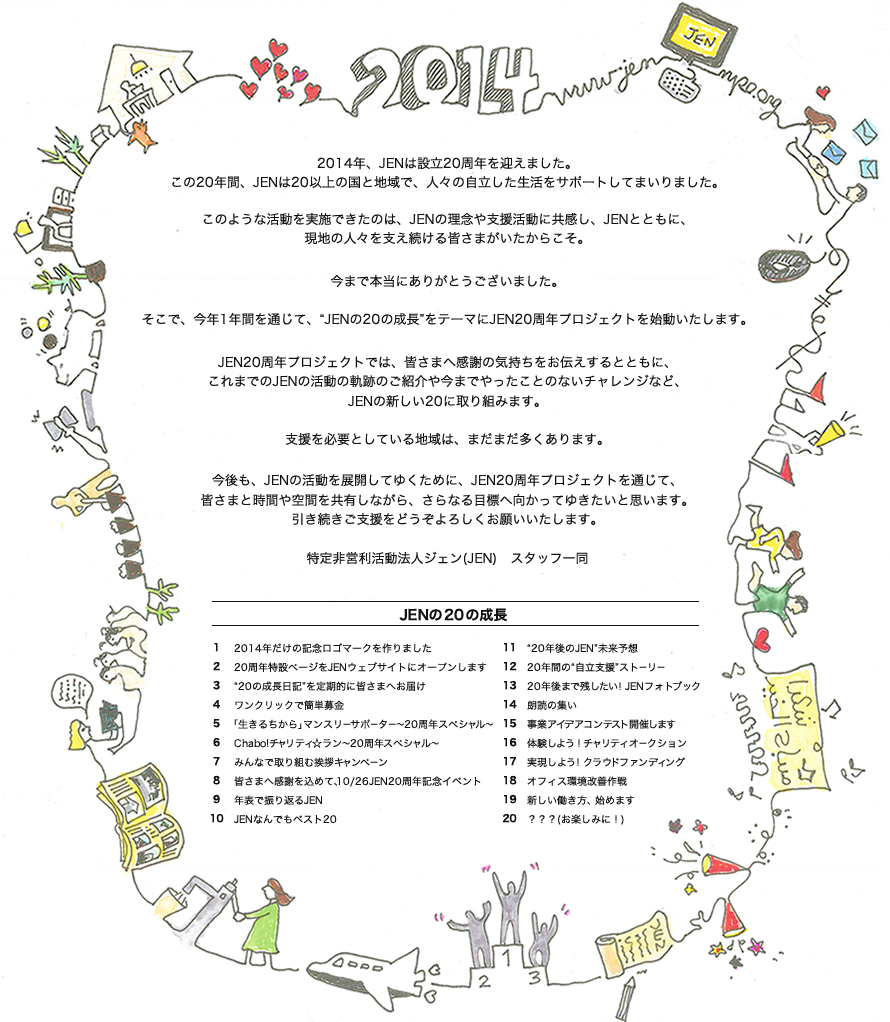 2014
www.jen-npo.org
JEN
2014年、JENは設立20周年を迎えました。
この20年間、JENは20以上の国と地域で、人々の自立した生活をサポートしてまいりました。
このような活動を実施できたのは、JENの理念や支援活動に共感し、JENとともに、
現地の人々を支え続ける皆さまがいたからこそ。
今まで本当にありがとうございました。
そこで、今年1年間を通じて、“JENの20の成長”をテーマにJEN20周年プロジェクトを始動いたします。
JEN20周年プロジェクトでは、皆さまへ感謝の気持ちをお伝えするとともに、
これまでのJENの活動の軌跡のご紹介や今までやったことのないチャレンジなど、
JENの新しい20に取り組みます。
支援を必要としている地域は、まだまだ多くあります。
今後も、JENの活動を展開してゆくために、JEN20周年プロジェクトを通じて、
皆さまと時間や空間を共有しながら、さらなる目標へ向かってゆきたいと思います。
引き続きご支援をどうぞよろしくお願いいたします。
特定非営利活動法人ジェン(JEN)　スタッフ一同
JENの20の成長
1 2014年だけの記念ロゴマークを作りました
2 20周年特設ページをJENウェブサイトにオープンします
3 “20の成長日記”を定期的に皆さまへお届け
4 ワンクリックで簡単募金
5 「生きるちから」マンスリーサポーター～20周年スペシャル～
6 Chabo!チャリティ☆ラン～20周年スペシャル～
7 みんなで取り組む挨拶キャンペーン
8 皆さまへ感謝を込めて、10/26JEN20周年記念イベント
9 年表で振り返るJEN
10 JENなんでもベスト20
11 “20年後のJEN”未来予想
12 20年間の“自立支援”ストーリー
13 20年後まで残したい! JENフォトブック
14 朗読の集い
15 事業アイデアコンテスト開催します
16 体験しよう！チャリティオークション
17 実現しよう! クラウドファンディング
18 オフィス環境改善作戦
19 新しい働き方、始めます
20 ？？？(お楽しみに！)
1
2
3